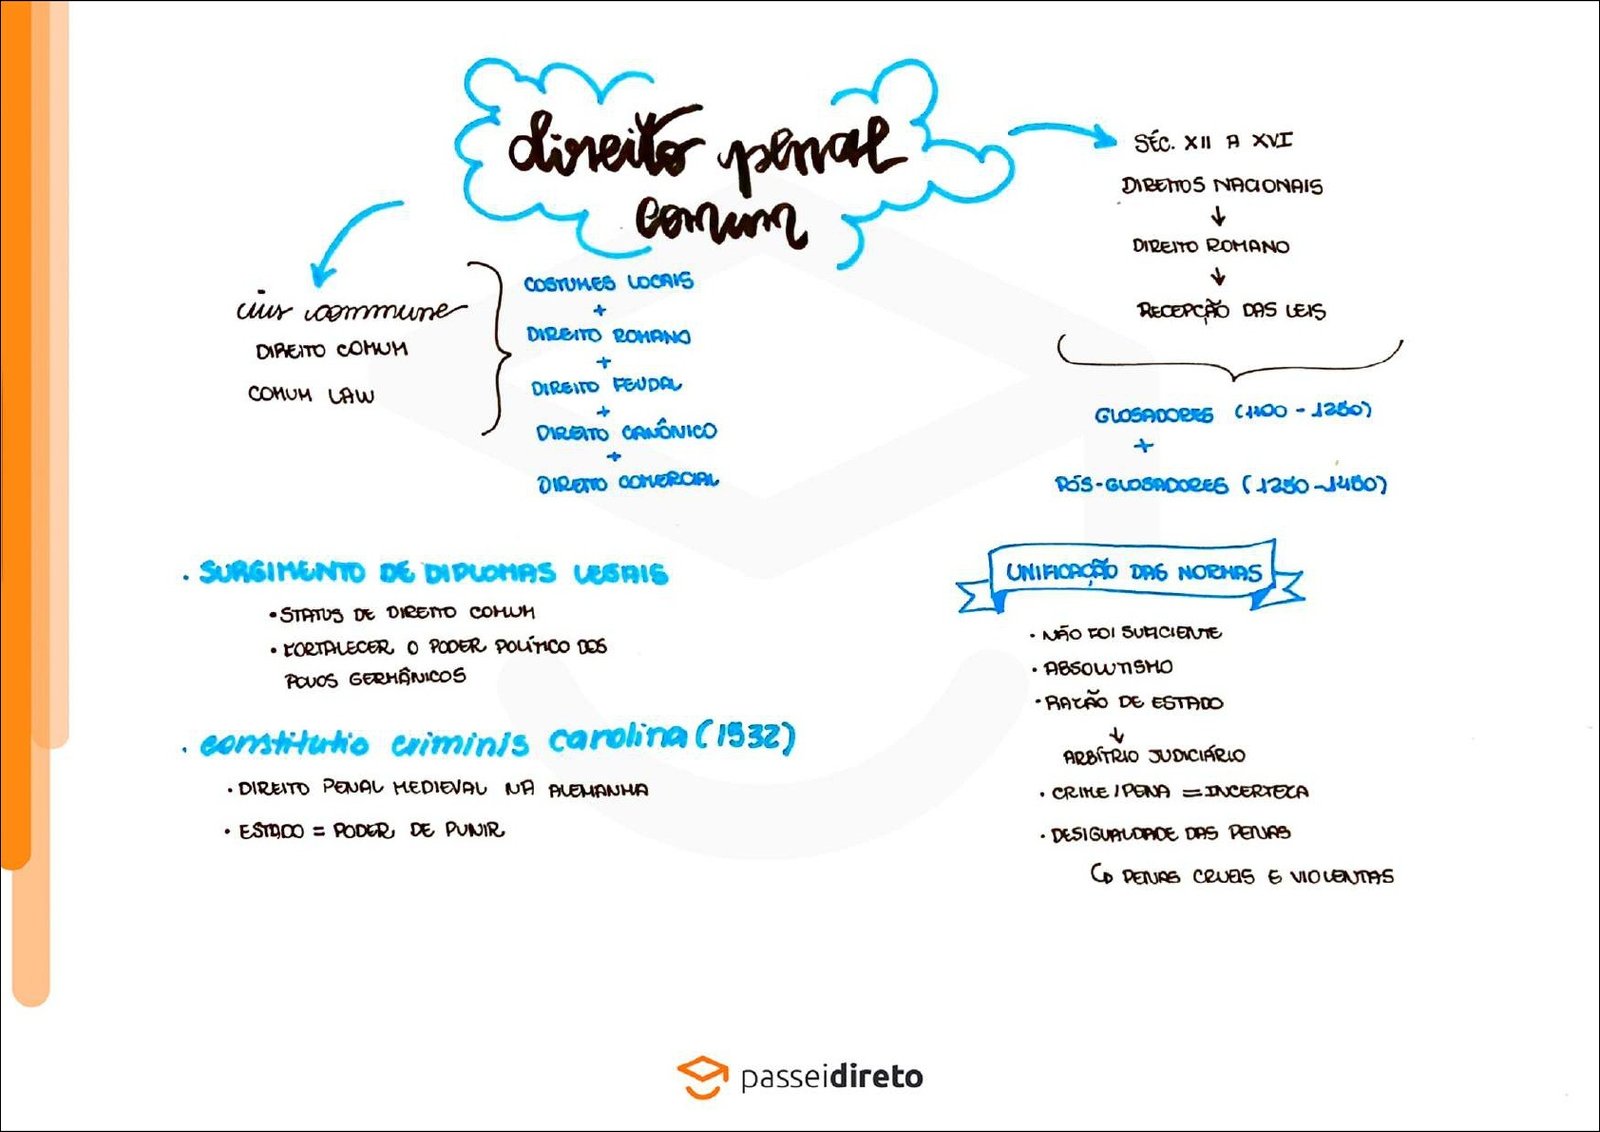 direito penal
comum
SÉC. XII A XVI
DIREITOS NACIONAIS
↓
DIREITO ROMANO
↓
RECEPÇÃO DAS LEIS
GLOSADORES (1100 - 1250)
+
PÓS-GLOSADORES (1250 - 1450)
ius commune
DIREITO COMUM
COMUM LAW
COSTUMES LOCAIS
+
DIREITO ROMANO
+
DIREITO FEUDAL
+
DIREITO CANÔNICO
+
DIREITO COMERCIAL
• SURGIMENTO DE DIPLOMAS LEGAIS
• STATUS DE DIREITO COMUM
• FORTALECER O PODER POLÍTICO DOS
POVOS GERMÂNICOS
• constitutio criminis carolina (1532)
• DIREITO PENAL MEDIEVAL NA ALEMANHA
• ESTADO = PODER DE PUNIR
UNIFICAÇÃO DAS NORMAS
• NÃO FOI SUFICIENTE
• ABSOLUTISMO
• RAZÃO DE ESTADO
↓
ARBÍTRIO JUDICIÁRIO
• CRIME/PENA = INCERTEZA
• DESIGUALDADE DAS PENAS
↳ PENAS CRUEIS E VIOLENTAS
passeidireto